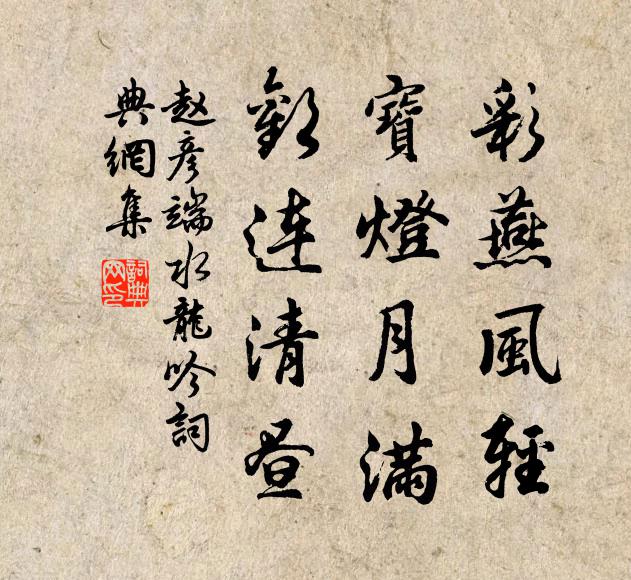 彩燕風輕
寶燈月滿
歡連清晝
赵彥端水龍吟詞
典網集
詞典
网印